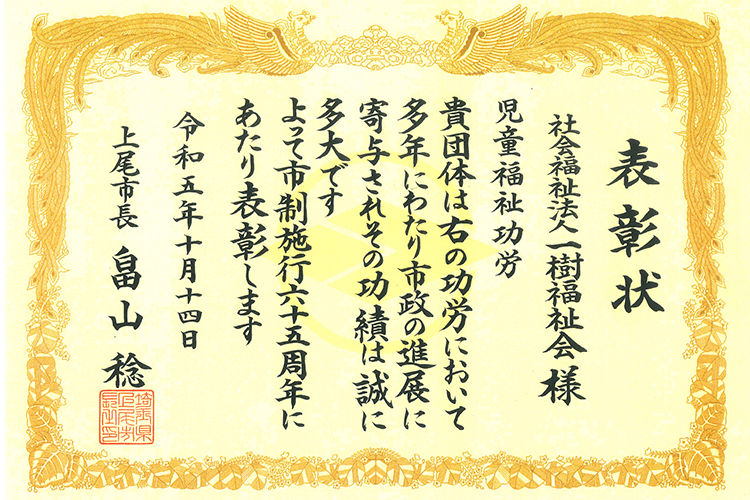 表彰状
社会福祉法人一樹福祉会 様
児童福祉功労
貴団体は右の功労において
多年にわたり市政の進展に
寄与されその功績は誠に
多大です
よって市制施行六十五周年に
あたり表彰します
令和五年十月十四日
上尾市長 畠山 稔